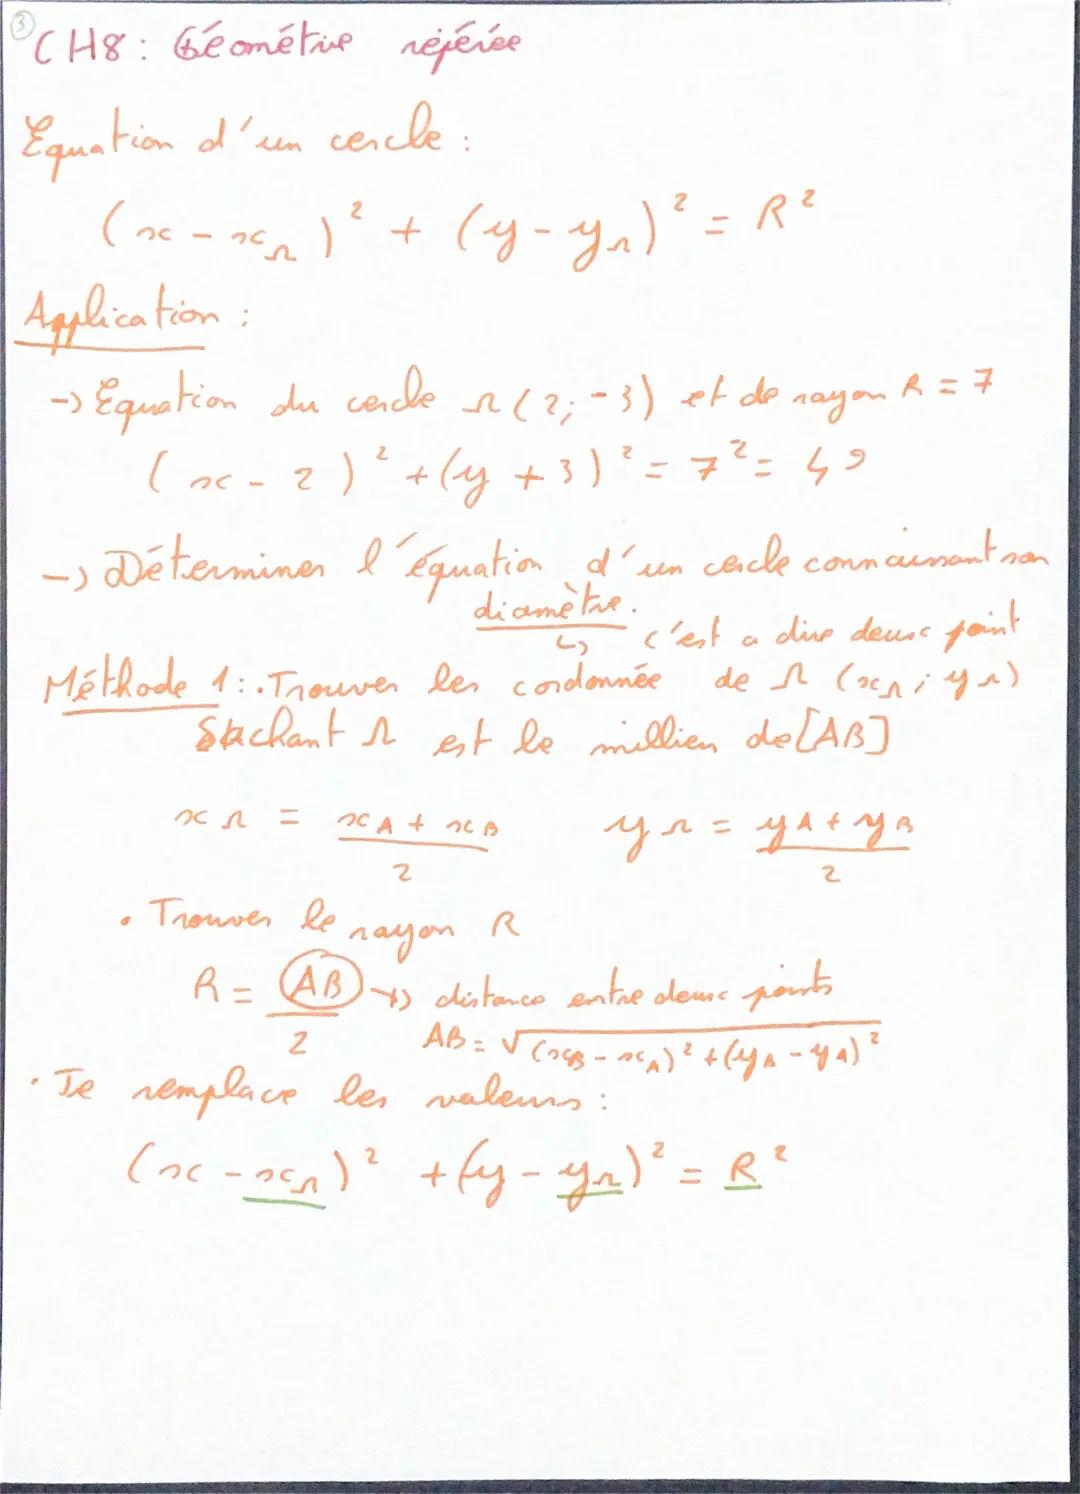 3
CH8 : Géométrie repérée
Equation d'un cercle :
(x - xΩ)² + (y - yΩ)² = R²
Application :
-> Equation du cercle Ω(2; -3) et de rayon R = 7
(x - 2)² + (y + 3)² = 7² = 49
-> Déterminer l'équation d'un cercle connaissant son
diamètre.
↳ c'est a dire deux point
Méthode 1 : . Trouver les cordonnée de Ω (xΩ ; yΩ)
Sachant Ω est le millieu de [AB]
xΩ = (xA + xB)/2 yΩ = (yA + yB)/2
• Trouver le rayon R
R = AB/2 -> distance entre deux points
AB = √((xB - xA)² + (yB - yA)²)
• Je remplace les valeurs :
(x - xΩ)² + (y - yΩ)² = R²